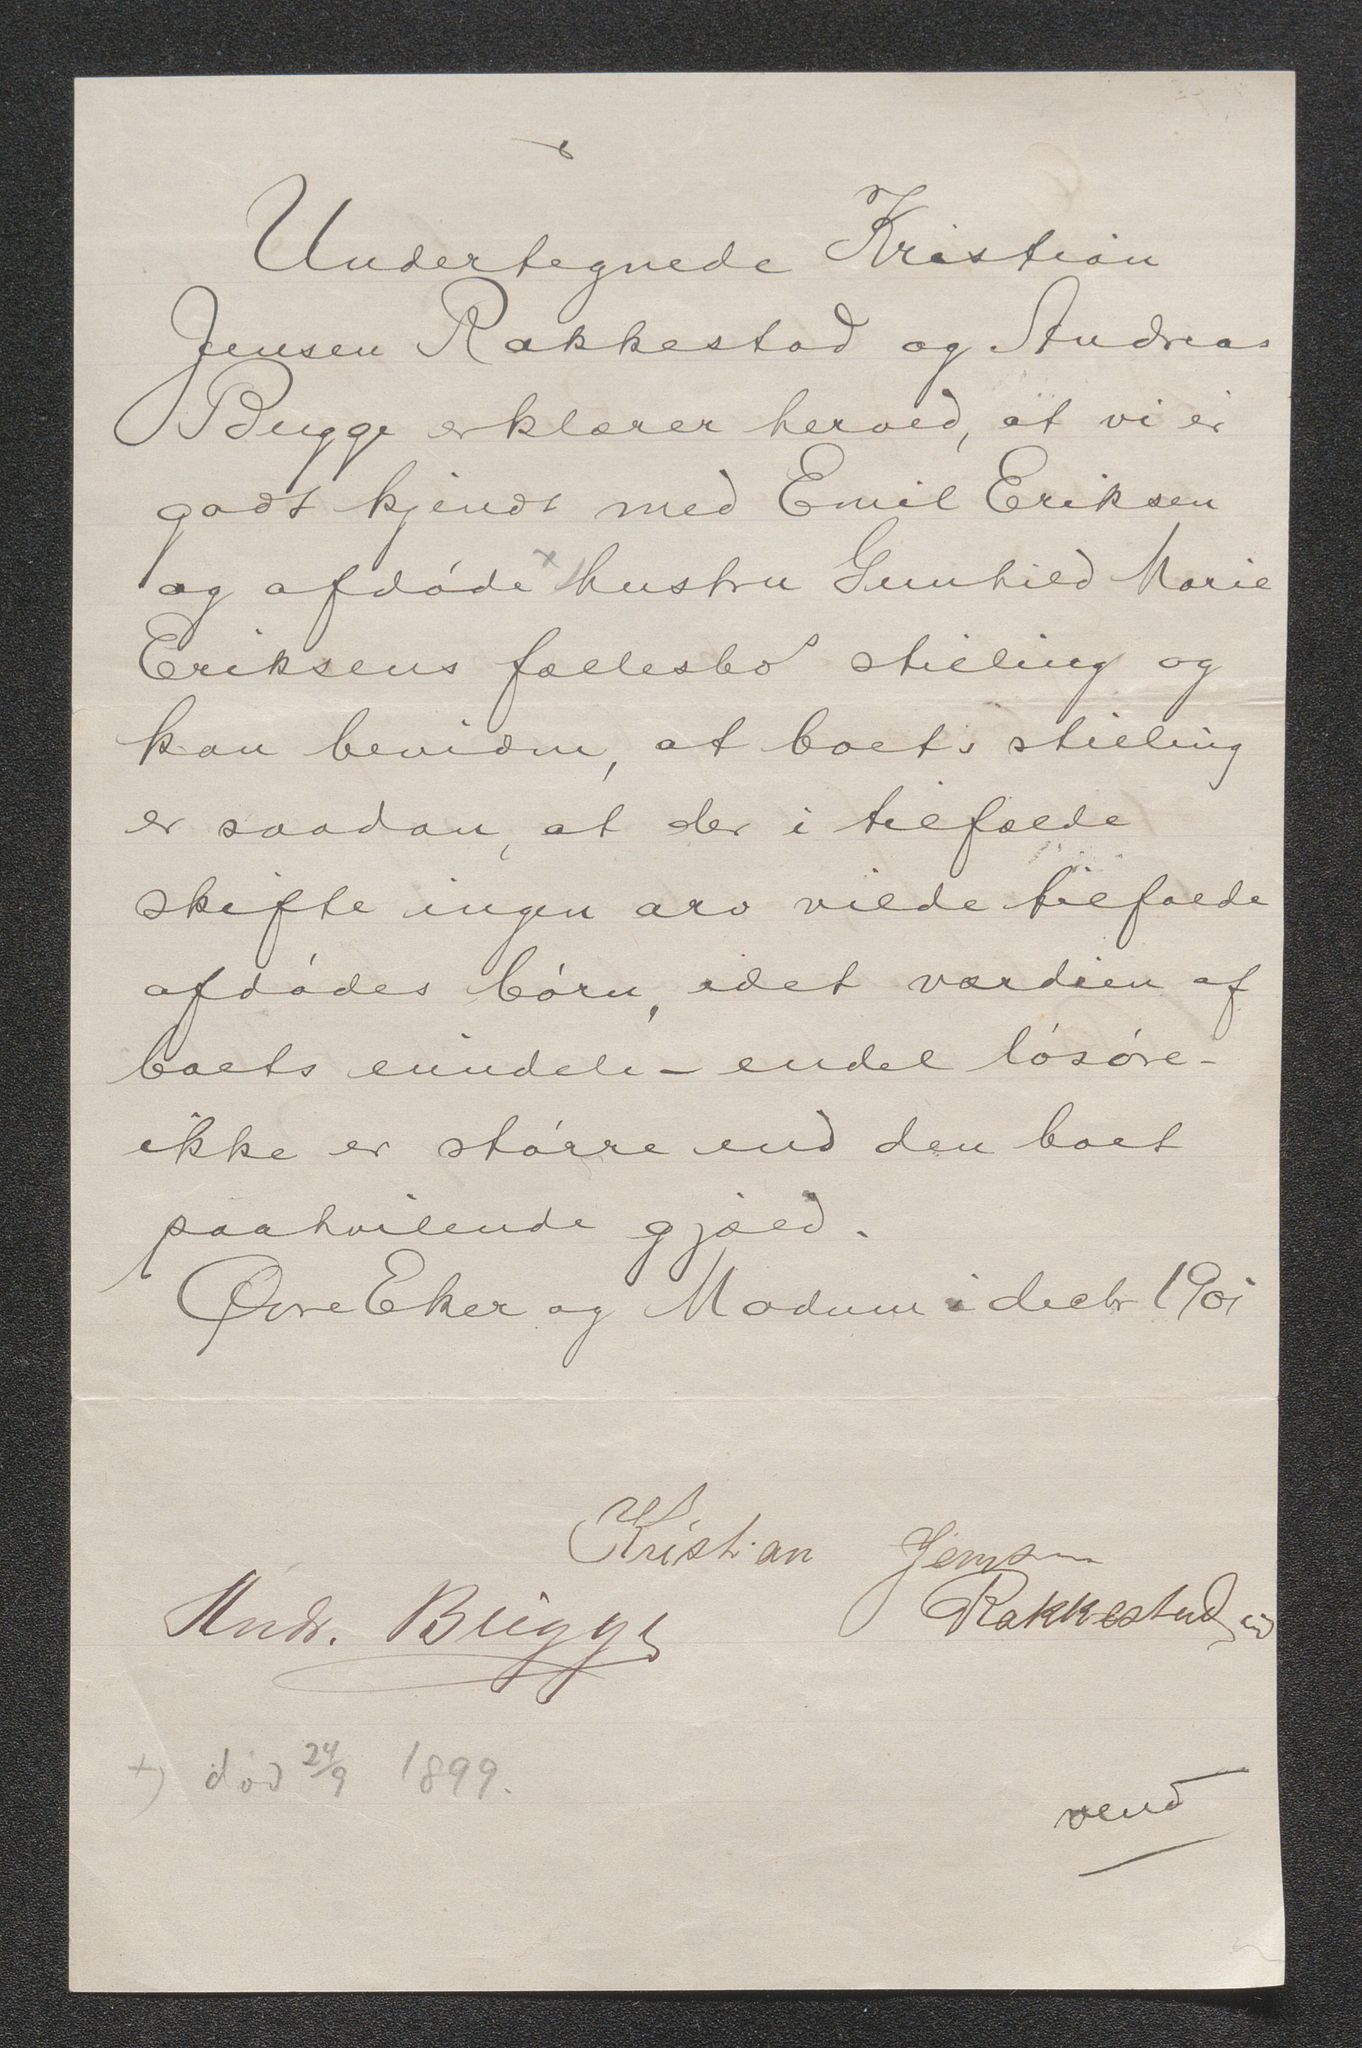 Undertegnede Kristian
Jensen Rakkestad og Andreas
Bugge erklærer herved, at vi er
godt kjendt med Emil Eriksen
og afdøde x hustru Gunhild Marie
Eriksens fællesbo's stilling og
kan bevidne, at boets stilling
er saadan, at der i tilfælde
skifte ingen arv vilde tilfalde
afdødes børn, idet værdien af
boets eiendele – endel løsøre –
ikke er større end den boet
paahvilende gjæld.
Øvre Eker og Modum i decbr 1901
Kristian Jensen
Andr. Bugge
Rakkestad
x) død 24/9 1899.
vend